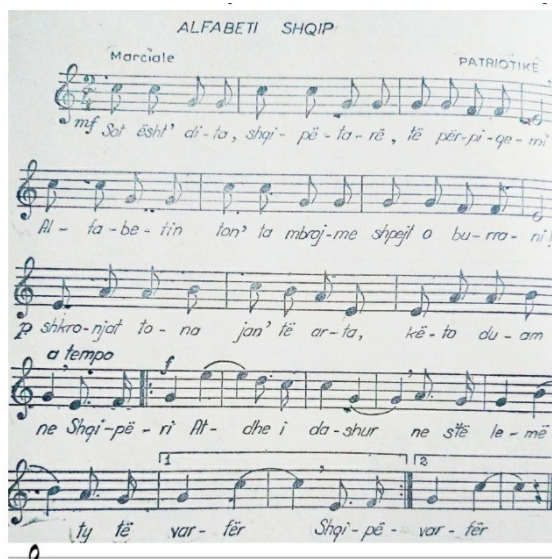 ALFABETI SHQIP
Marciale
PATRIOTIKE
mf Sot ësht' di-ta, shqi-pë-ta-rë, të për-pi-qe-mi
Al-fa-be-tin ton' ta mbroj-me shpejt o bu-rra-ni!
p shkro-njat to-na jan' të ar-ta, kë-to du-am
a tempo f
ne Shqi-pë-ri At-dhe i da-shur ne s'të le-më
1 2
ty të var-fër Shqi-pë-var-fër